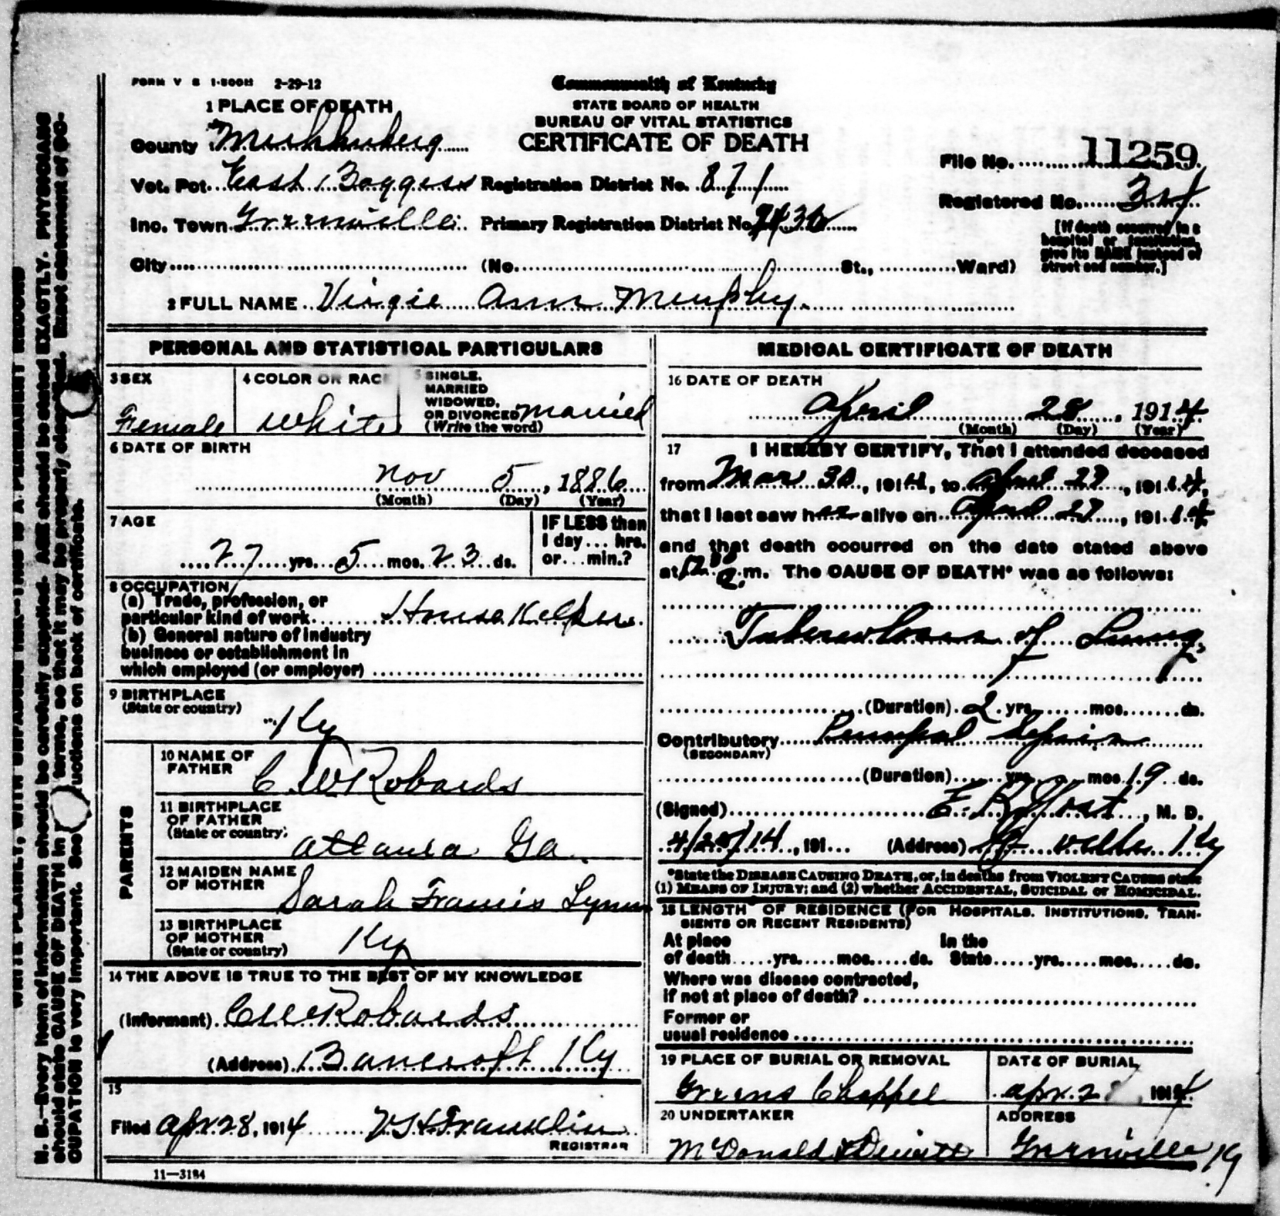 FORM V S 1-500M 2-29-12
Commonwealth of Kentucky
STATE BOARD OF HEALTH
BUREAU OF VITAL STATISTICS
CERTIFICATE OF DEATH
1 PLACE OF DEATH
County Muhlenberg
Vot. Pct. East Boggess Registration District No. 871
Inc. Town Greenville Primary Registration District No.
City (No. St., Ward)
File No. 11259
Registered No.
[If death occurred in a
hospital or institution,
give its NAME instead of
street and number.]
2 FULL NAME Virgie Ann Murphy
PERSONAL AND STATISTICAL PARTICULARS
3 SEX
Female
4 COLOR OR RACE
White
5 SINGLE,
MARRIED
WIDOWED,
OR DIVORCED married
(Write the word)
6 DATE OF BIRTH
Nov 5, 1886
(Month) (Day) (Year)
7 AGE
27 yrs. 5 mos. 23 ds.
IF LESS than
1 day ... hrs.
or ... min.?
8 OCCUPATION
(a) Trade, profession, or
particular kind of work House Keeper
(b) General nature of industry
business or establishment in
which employed (or employer)
9 BIRTHPLACE
(State or country)
Ky
PARENTS
10 NAME OF
FATHER C W Robards
11 BIRTHPLACE
OF FATHER
(State or country)
Atlanta Ga.
12 MAIDEN NAME
OF MOTHER Sarah Francis Lynn
13 BIRTHPLACE
OF MOTHER
(State or country) Ky
14 THE ABOVE IS TRUE TO THE BEST OF MY KNOWLEDGE
(Informant) C W Robards
(Address) Bancroft Ky
15
Filed Apr. 28, 1914 Franklin
REGISTRAR
11—3184
MEDICAL CERTIFICATE OF DEATH
16 DATE OF DEATH
April 28, 1914
(Month) (Day) (Year)
17 I HEREBY CERTIFY, That I attended deceased
from Mar 30, 1914, to April 27, 1914,
that I last saw her alive on April 27, 1914,
and that death occurred on the date stated above
at a m. The CAUSE OF DEATH* was as follows:
Tuberculosis of Lung
(Duration) 2 yrs. mos. ds.
Contributory Puerperal Sepsis
(SECONDARY)
(Duration) yrs. mos. 19 ds.
(Signed) , M. D.
4/28/14, 191 (Address) Ky
*State the DISEASE CAUSING DEATH, or, in deaths from VIOLENT CAUSES state
(1) MEANS OF INJURY; and (2) whether ACCIDENTAL, SUICIDAL or HOMICIDAL.
18 LENGTH OF RESIDENCE (FOR HOSPITALS, INSTITUTIONS, TRAN-
SIENTS OR RECENT RESIDENTS)
At place
of death yrs. mos. ds.
In the
State yrs. mos. ds.
Where was disease contracted,
if not at place of death?
Former or
usual residence
19 PLACE OF BURIAL OR REMOVAL
Greens Chappel
DATE OF BURIAL
Apr. 2 1914
20 UNDERTAKER
McDonald &
ADDRESS
Greenville Ky
WRITE PLAINLY, WITH UNFADING INK—THIS IS A PERMANENT RECORD
N. B.—Every item of information should be carefully supplied. AGE should be stated EXACTLY. PHYSICIANS
should state CAUSE OF DEATH in terms, so that it may be properly classified. Exact statement of OC-
CUPATION is very important. See instructions on back of certificate.